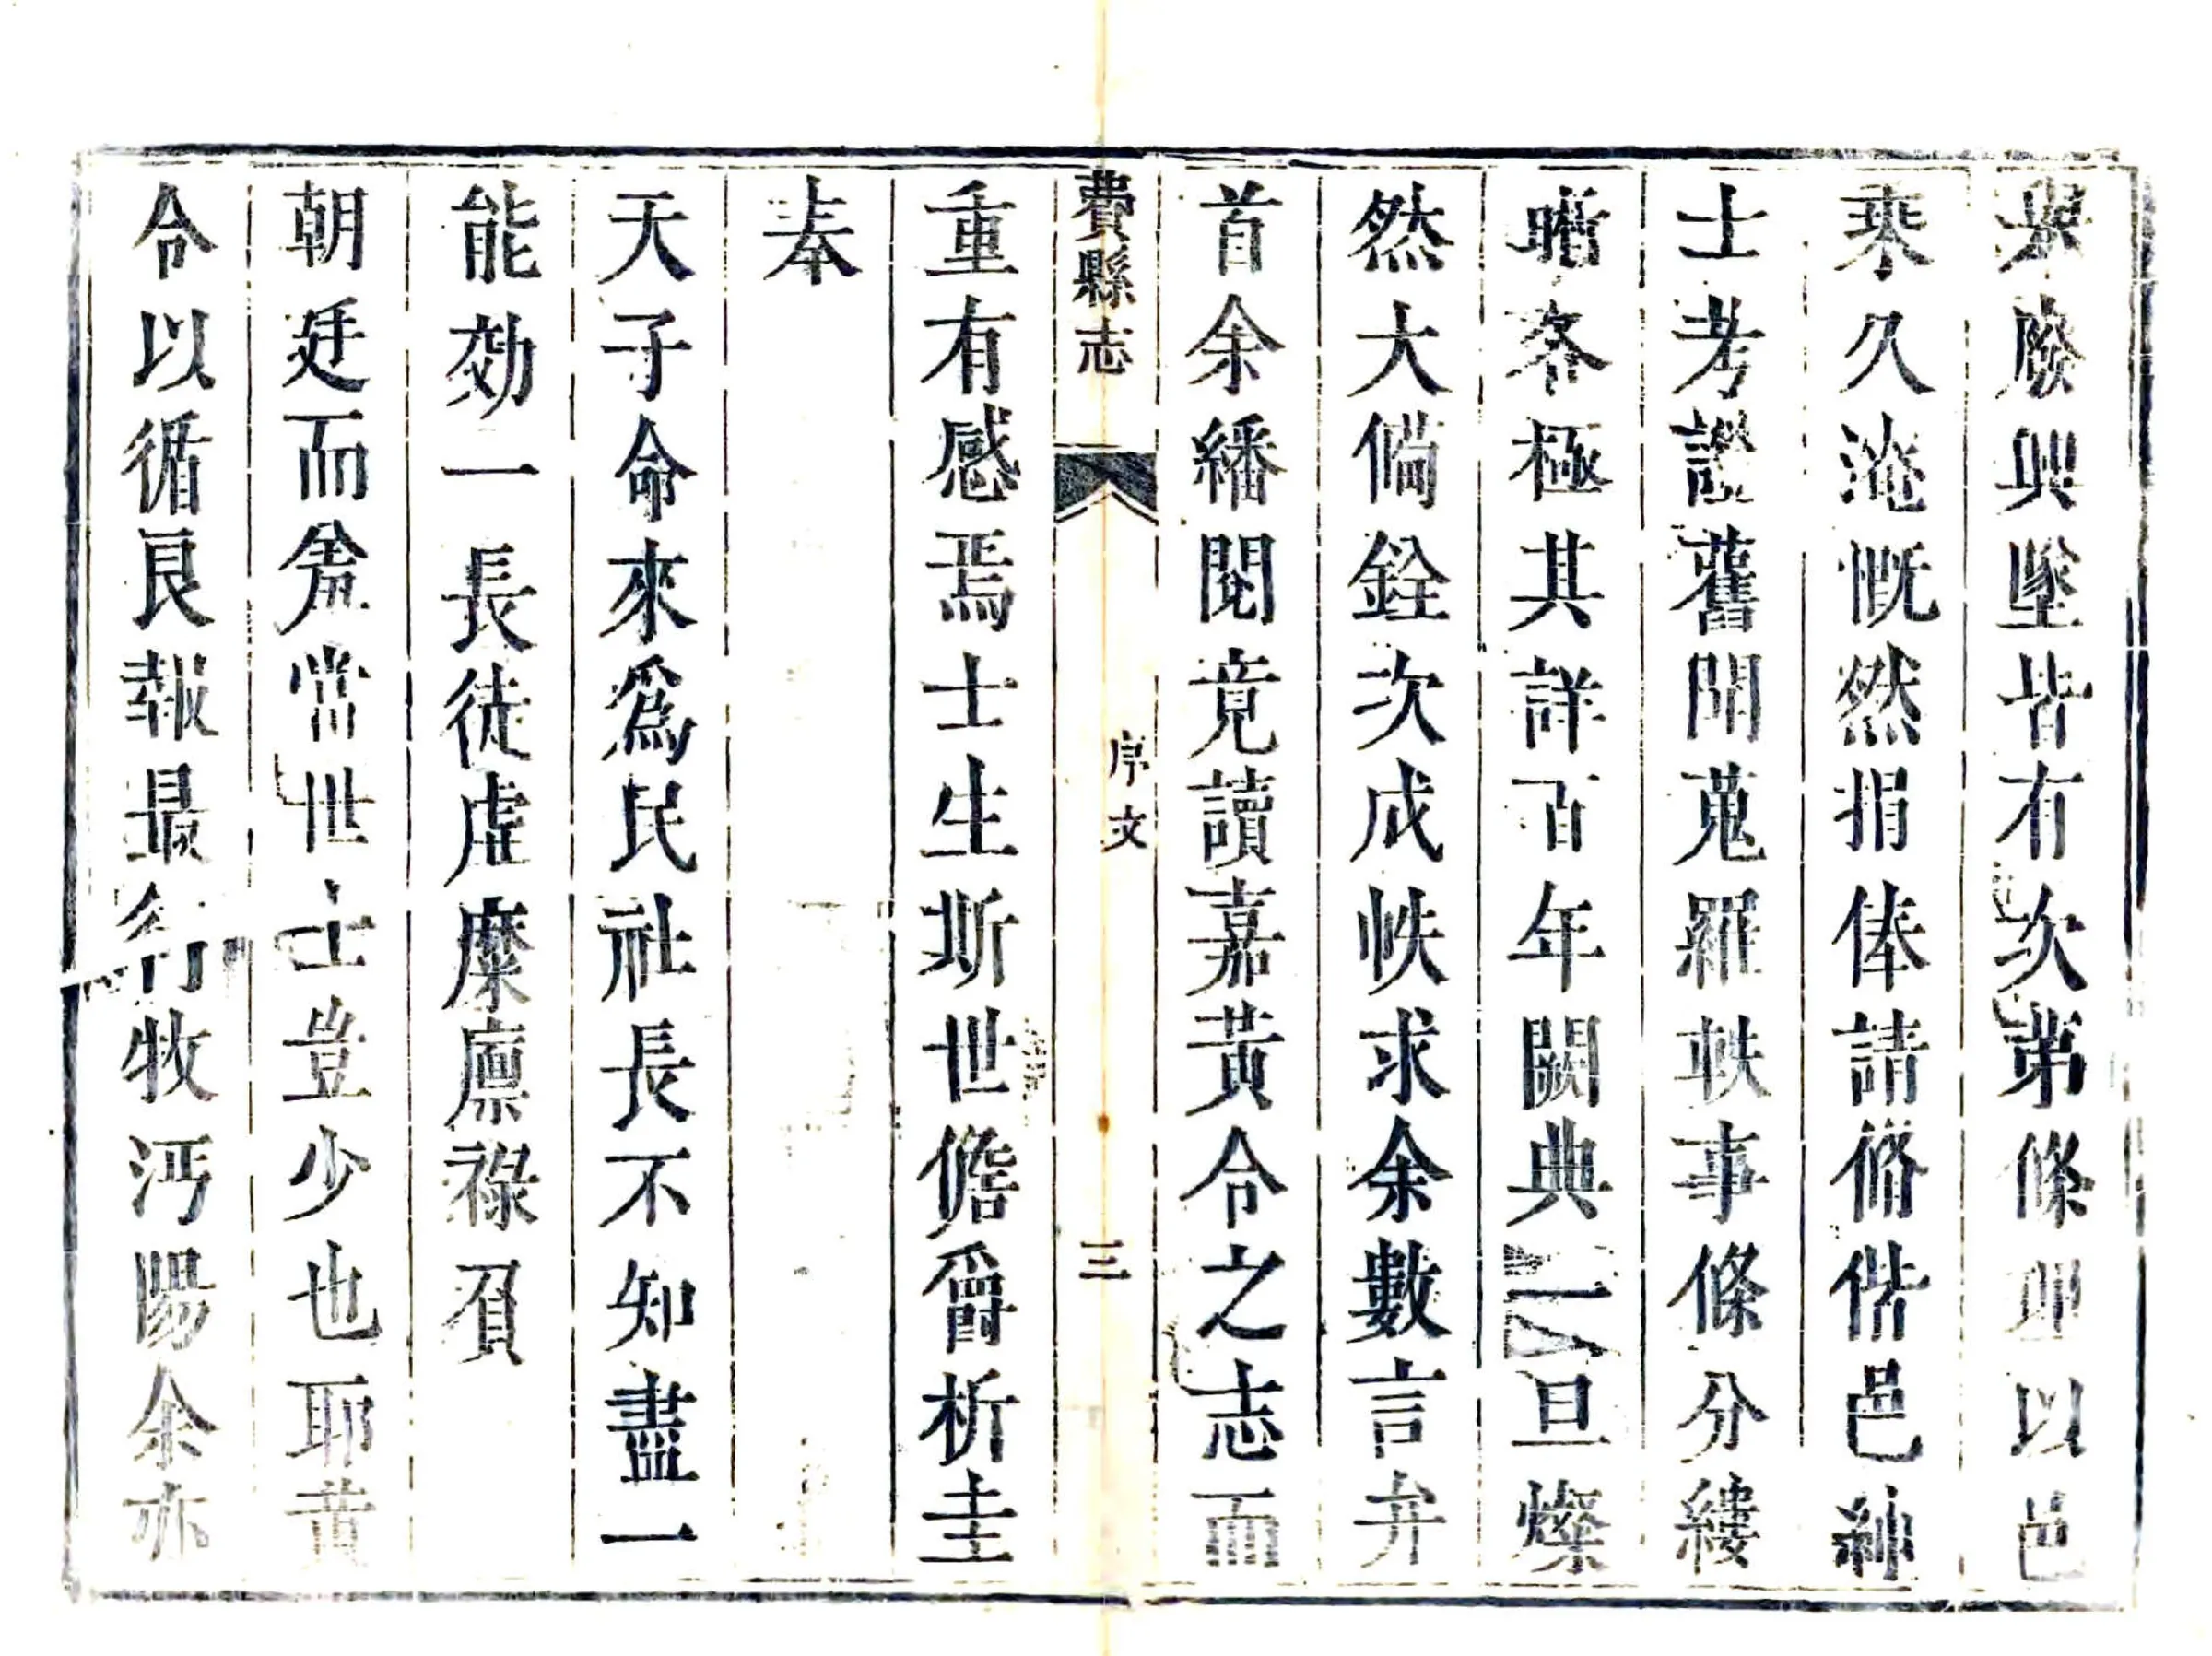 舉廢興墜皆有次第條理以邑
乘久淹慨然捐俸請脩偕邑紳
士考證舊聞蒐羅軼事條分縷
晰各極其詳百年闕典一旦燦
然大備銓次成帙求余數言弁
首余繙閱竟讀嘉黃令之志而
費縣志
序文
三
重有感焉士生斯世儋爵析圭
奉
天子命來爲民社長不知盡一
能効一長徒虛糜廩祿負
朝廷而貟當世士豈少也耶黃
令以循良報最行牧沔陽余亦